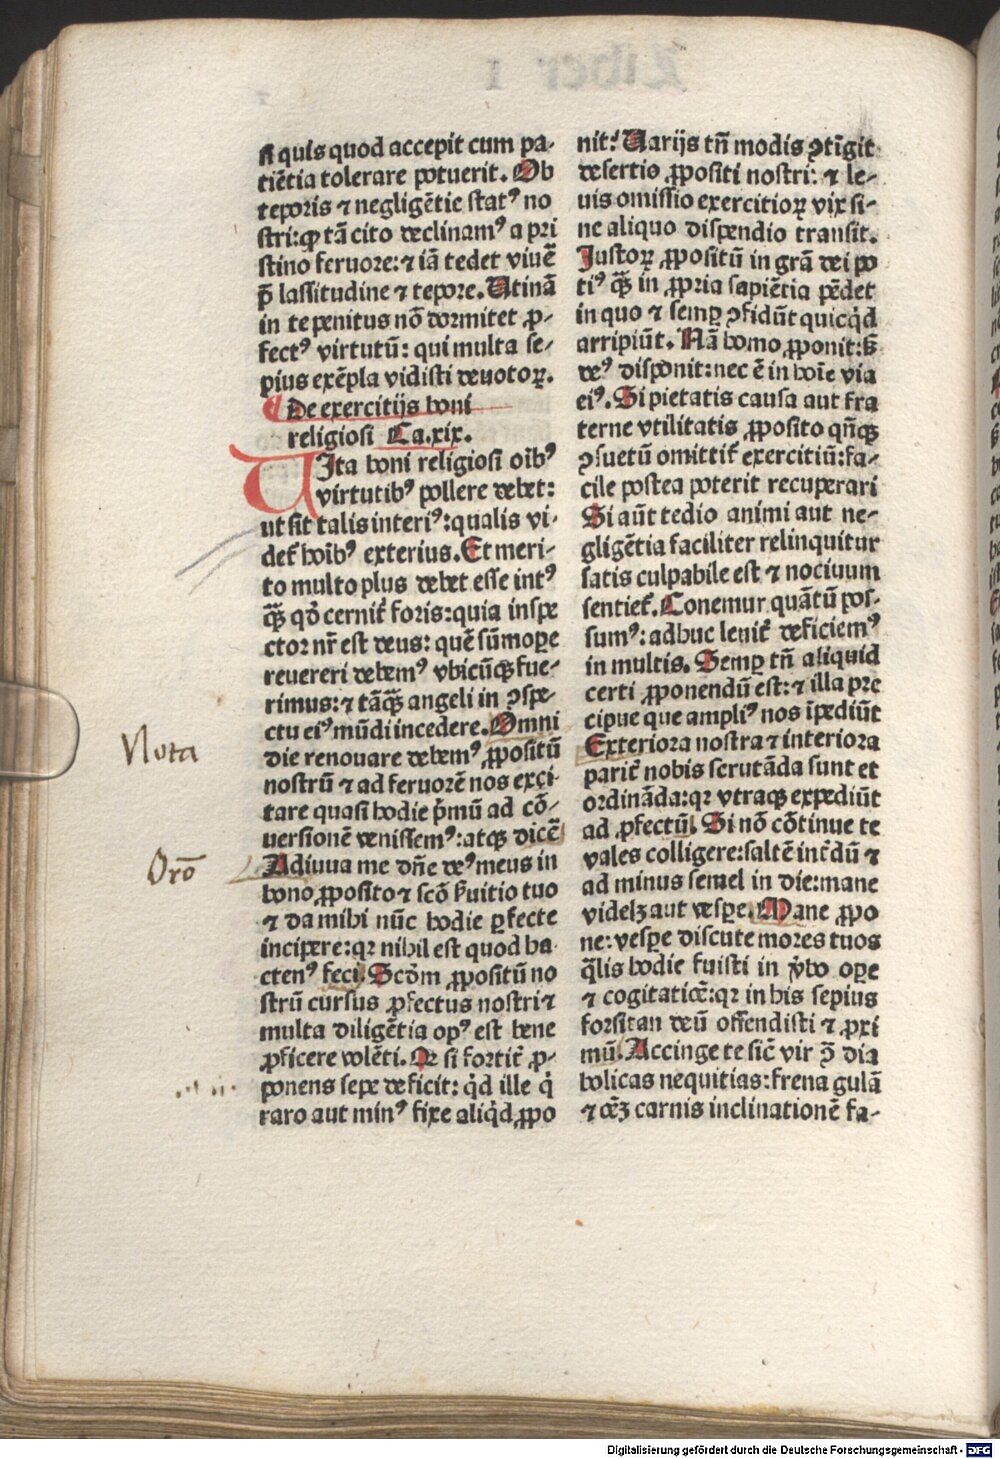 si quis quod accepit cum pa-
tiētia tolerare potuerit. Ob
teporis ⁊ negligētie statꝰ no
stri: ꝙ tā cito declinamꝰ a pri
stino feruore: ⁊ iā tedet viuē
p̄ lassitudine ⁊ tepore. Utinā
in te penitus nō dormitet ꝓ-
fectꝰ virtutū: qui multa se-
pius exēpla vidisti deuotoꝝ.
De exercitijs boni
religiosi Ca. xix.
Uita boni religiosi oībꝰ
virtutibꝰ pollere debet:
ut sit talis interiꝰ: qualis vi-
det̉ hoībꝰ exterius. Et meri-
to multo plus debet esse intꝰ
ꝙ̄ qd̓ cernit̉ foris: quia inspe
ctor nr̄ est deus: quē sūmope
reuereri debemꝰ vbicūqꝫ fue-
rimus: ⁊ tāꝙ̄ angeli in ꝯspe-
ctu eiꝰ mūdi incedere. Omni
die renouare debemꝰ ꝓpositū
nostrū ⁊ ad feruorē nos exci-
tare quasi hodie p̄mū ad cō-
uersionē venissemꝰ: atqꝫ dicē
Adiuua me dn̄e deꝰ meus in
bono ꝓposito ⁊ scō s̓uitio tuo
⁊ da mihi nūc hodie ꝑfecte
incipere: qꝛ nihil est quod ha-
ctenꝰ feci. Scd̓m ꝓpositū no
strū cursus ꝓfectus nostri ⁊
multa diligētia opꝰ est bene
ꝓficere volēti. Qꝛ si fortit̉ ꝓ-
ponens sepe deficit: qd̓ ille q̓
raro aut minꝰ fixe aliqd̓ ꝓpo
nit: Uarijs tn̄ modis ꝯtīgit
desertio ꝓpositi nostri: ⁊ le-
uis omissio exercitioꝝ vix si-
ne aliquo dispendio transit.
Justoꝝ ꝓpositū in grā dei po
tiꝰ ꝙ̄ in ꝓpria sapiētia pēdet
in quo ⁊ semꝑ ꝯfidūt quicqd̓
arripiūt. Nā homo ꝓponit: sꝫ
deꝰ disponit: nec ē in hoīe via
eiꝰ. Si pietatis causa aut fra
terne vtilitatis ꝓposito qn̄qꝫ
ꝯsuetū omittit̉ exercitiū: fa-
cile postea poterit recuperari
Si aūt tedio animi aut ne-
gligētia faciliter relinquitur
satis culpabile est ⁊ nociuum
sentiet̉. Conemur quātū pos-
sumꝰ: adhuc leuit̉ deficiemꝰ
in multis. Semꝑ tn̄ aliquid
certi ꝓponendū est: ⁊ illa pre
cipue que ampliꝰ nos īpediūt
Exteriora nostra ⁊ interiora
parit̉ nobis scrutāda sunt et
ordināda: qꝛ vtraqꝫ expediūt
ad ꝓfectū. Si nō cōtinue te
vales colligere: saltē int̓dū ⁊
ad minus semel in die: mane
videlꝫ aut vespe. Mane ꝓpo
ne: vespe discute mores tuos
q̄lis hodie fuisti in v̓bo ope
⁊ cogitatiōe: qꝛ in his sepius
forsitan deū offendisti ⁊ ꝓxi
mū. Accinge te sic̄ vir ꝯ̄ dia
bolicas nequitias: frena gulā
⁊ oēꝫ carnis inclinationē fa-
Nota
Orō
Liber I
Digitalisierung gefördert durch die Deutsche Forschungsgemeinschaft - DFG